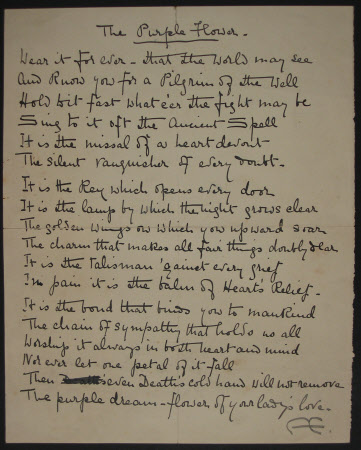 The Purple Flower.
Wear it for ever – that the World may see
And Know you for a Pilgrim of the Well
Hold bit fast what e'er the fight may be
Sing to it oft the Ancient Spell
It is the missal of a heart devout
The silent vanquisher of every doubt.
It is the Key which opens every door
It is the lamp by which the night grows clear
The golden wings on which you upward soar
The charm that makes all fair things doubly dear
It is the Talisman 'gainst every grief
In pain it is the balm of Heart's Relief.
It is the bond that binds you to mankind
The chain of sympathy that holds us all
Worship it always in both heart and mind
Nor ever let one petal of it fall
Then even Death's cold hand will not remove
The purple dream-flower of your lady's love.